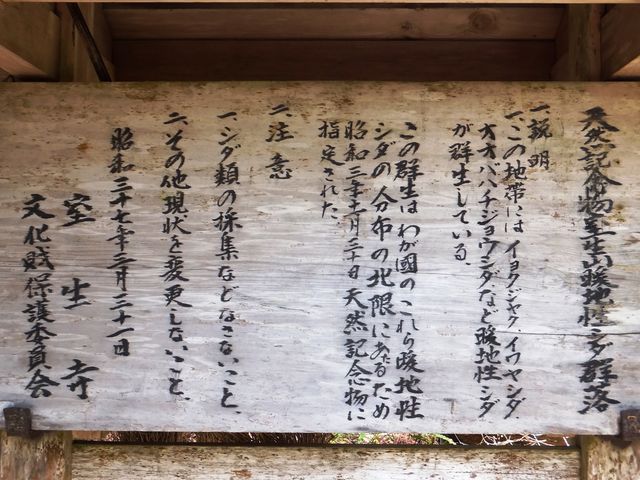 天然記念物室生山暖地性シダ群落
一、説明
一、この地帯にはイヨクジヤク、イワヤシダ、
オオバハチジョウシダなど暖地性シダ
が群生している、
この群生はわが國のこれら暖地性
シダの分布の北限にあたるため
昭和三年十一月三十日天然記念物に
指定された、
二、注意
一、シダ類の採集などなさないこと、
二、その他現状を変更しないこと、
昭和三十七年三月三十一日
室生寺
文化財保護委員会